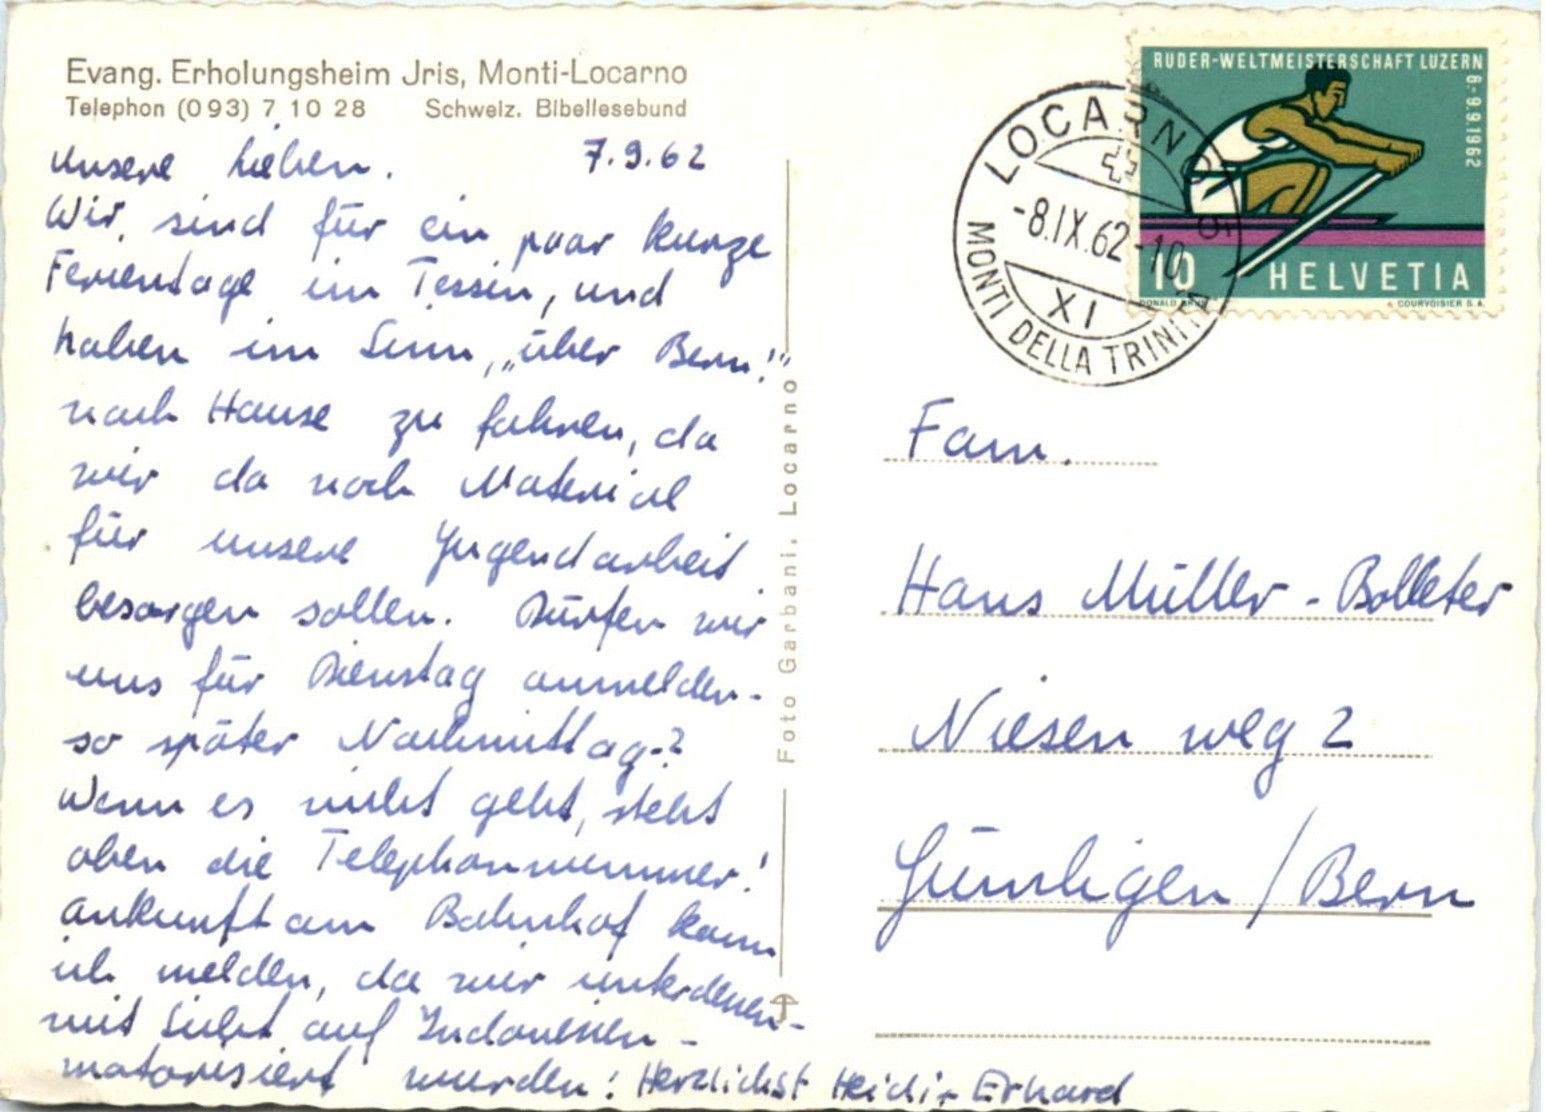 Evang. Erholungsheim Jris, Monti-Locarno
Telephon (093) 7 10 28 Schweiz. Bibellesebund
unsere Lieben. 7.9.62
Wir sind für ein paar kurze
Ferientage im Tessin, und
haben im Sinn, „über Bern!"
nach Hause zu fahren, da
wir da noch Material
für unsere Jugendarbeit
besorgen sollen. Dürfen wir
uns für Dienstag anmelden-
so später Nachmittag-?
Wenn es nicht geht, steht
oben die Telephonnummer!
Ankunft am Bahnhof kann
ich melden, da wir unterdessen-
mit Sicht auf Indonesien-
motorisiert wurden! Herzlichst Heidi + Erhard
Foto Garbani, Locarno
RUDER-WELTMEISTERSCHAFT LUZERN
6.-9.9.1962
10 HELVETIA
DONALD BRUN COURVOISIER S.A.
LOCARNO 5
-8.IX.62-10
XI
MONTI DELLA TRINITÀ
Fam.
Hans Müller-Bolleter
Niesenweg 2
Gümligen / Bern